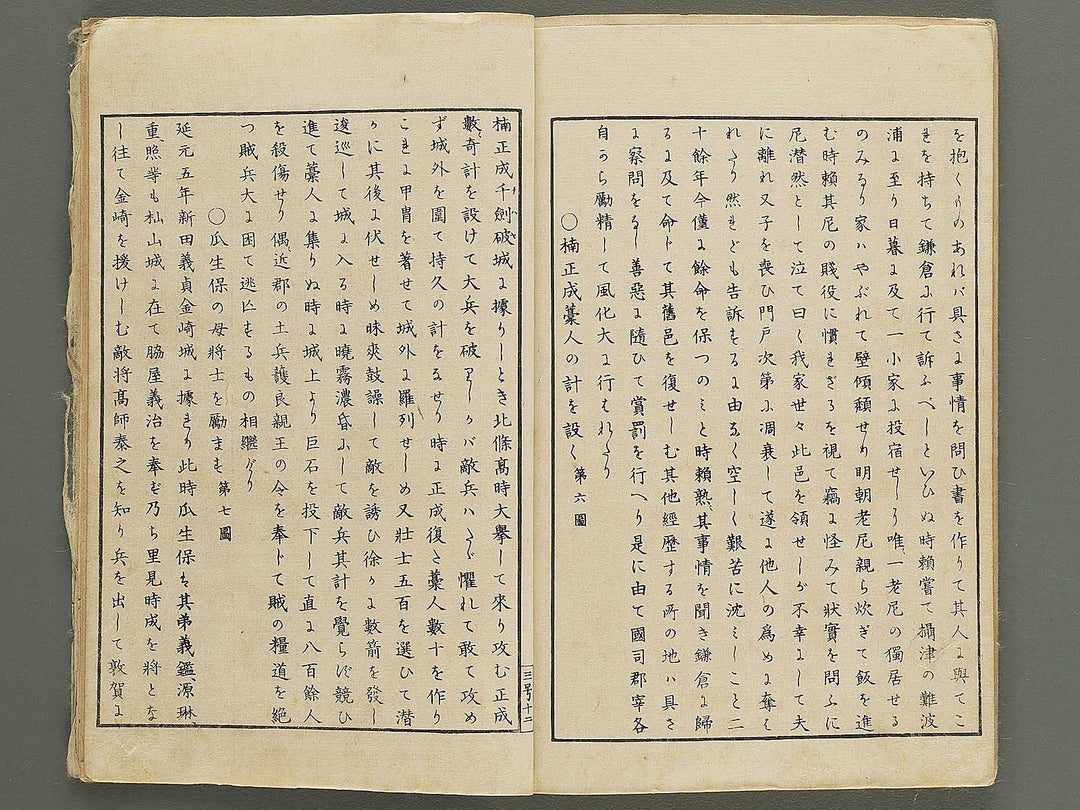 を抱くものあれバ具さに事情を問ひ書を作りて其人に與てこ
れを持ちて鎌倉に行て訴ふべしといひぬ時賴嘗て攝津の難波
浦に至り日暮に及て一小家に投宿せしう唯一老尼の獨居せる
のみなり家ハやぶれて壁傾頽せり明朝老尼親ら炊ぎて飯を進
む時賴其尼の賤役に慣れざるを視て竊に怪みて狀實を問ふに
尼潜然として泣て曰く我家世々此邑を領せしが不幸にして夫
に離れ又子を喪ひ門戸次第に凋衰して遂に他人の爲めに奪は
れたり然れども告訴するに由なく空しく艱苦に沈ミしこと二
十餘年今僅に餘命を保つのミと時賴熟其事情を聞き鎌倉に歸
るに及て命じて其舊邑を復せしむ其他經歷する所の地ハ具さ
に察問をなし善惡に隨ひて賞罰を行へり是に由て國司郡宰各
自から勵精して風化大に行はれたり
〇楠正成藁人の計を設く 第六圖
楠正成千劍破城に據りしとき北條髙時大擧して來り攻む正成
數奇計を設けて大兵を破りしかバ敵兵ハたゞ懼れて敢て攻め
ず城外を圍て持久の計をなせり時に正成復さ藁人數十を作り
これに甲冑を著せて城外に羅列せしめ又壯士五百を選ひて潜
かに其後に伏せしめ昧爽鼓譟して敵を誘ひ徐かに數箭を發し
逡巡して城に入る時に曉霧濃昏にして敵兵其計を覺らず競ひ
進て藁人に集りぬ時に城上より巨石を投下して直に八百餘人
を殺傷せり偶近郡の土兵護良親王の令を奉じて賊の糧道を絶
つ賊兵大に困て逃亡するもの相繼げり
〇瓜生保の母將士を勵ます 第七圖
延元五年新田義貞金崎城に據れり此時瓜生保は其弟義鑑源琳
重照等も杣山城に在て脇屋義治を奉ず乃ち里見時成を將とな
し往て金崎を援けしむ敵将髙師泰之を知り兵を出して敦賀に
三号十二